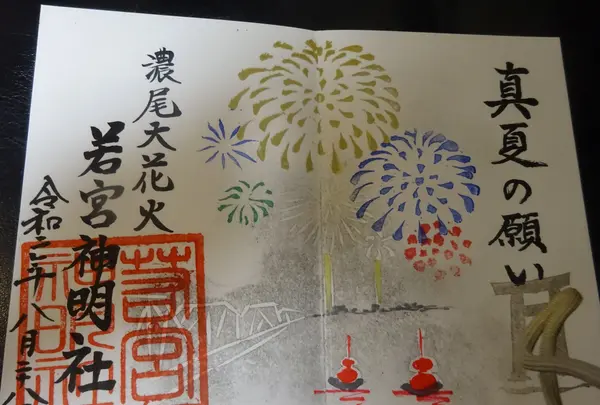 真夏の願い
濃尾大花火
若宮神明社
令和二年八月二八